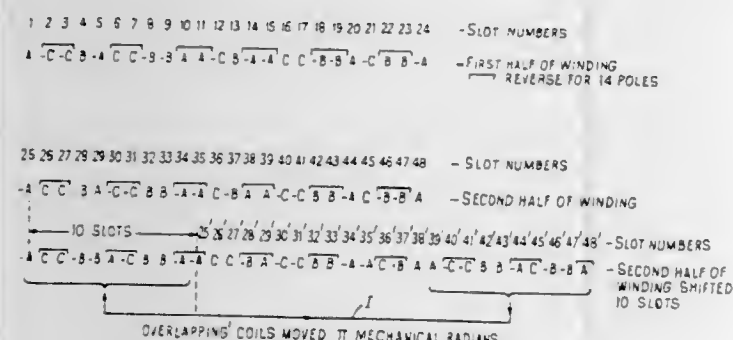 1 2 3 4 5 6 7 8 9 10 11 12 13 14 15 16 17 18 19 20 21 22 23 24 -SLOT NUMBERS
A -C -C B -A C C -B -B A A -C B -A -A C C -B -B A -C B B -A -FIRST HALF OF WINDING
REVERSE FOR 14 POLES
25 26 27 28 29 30 31 32 33 34 35 36 37 38 39 40 41 42 43 44 45 46 47 48 - SLOT NUMBERS
-A C C B A -C -C B B -A -A C -B A A -C -C B B -A C -B -B A -SECOND HALF OF WINDING
10 SLOTS 25' 26' 27' 28' 29' 30' 31' 32' 33' 34' 35' 36' 37' 38' 39' 40' 41' 42' 43' 44' 45' 46' 47' 48' -SLOT NUMBERS
-A C C -B -B A -C B B -A -A C C -B A -C -C B B -A -A C -B A A -C -C B B -A C -B -B A -SECOND HALF OF
WINDING SHIFTED
10 SLOTS
I
OVERLAPPING COILS MOVED π MECHANICAL RADIANS